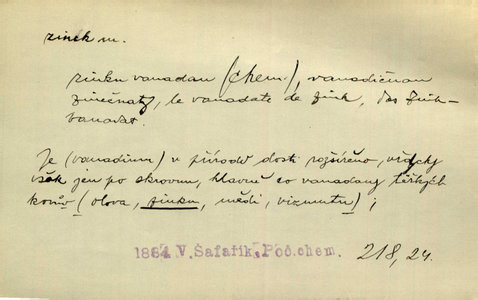 zinek m.
zinku vanadan (chem.), vanadičnan
zinečnatý, le vanadate de zink, das Zink-
vanadat.
Je (vanadium) v přírodě dosti rozšířeno, vždycky
však jen po skrovnu, hlavně co vanadany těžkých
kovův (olova, zinku, mědi, vizmutu);
1884 V. Šafařík, Poč. chem. 218, 24.